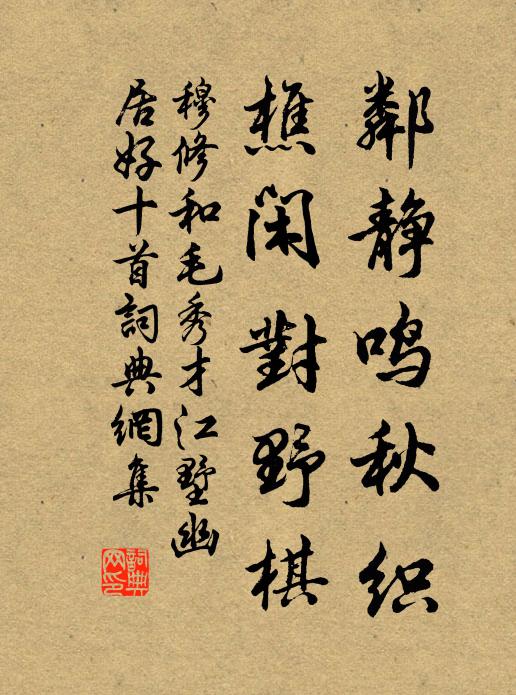 鄰静鸣秋织
樵闲對野棋
穆修和毛秀才江墅幽
居好十首詞典網集
詞典
网印